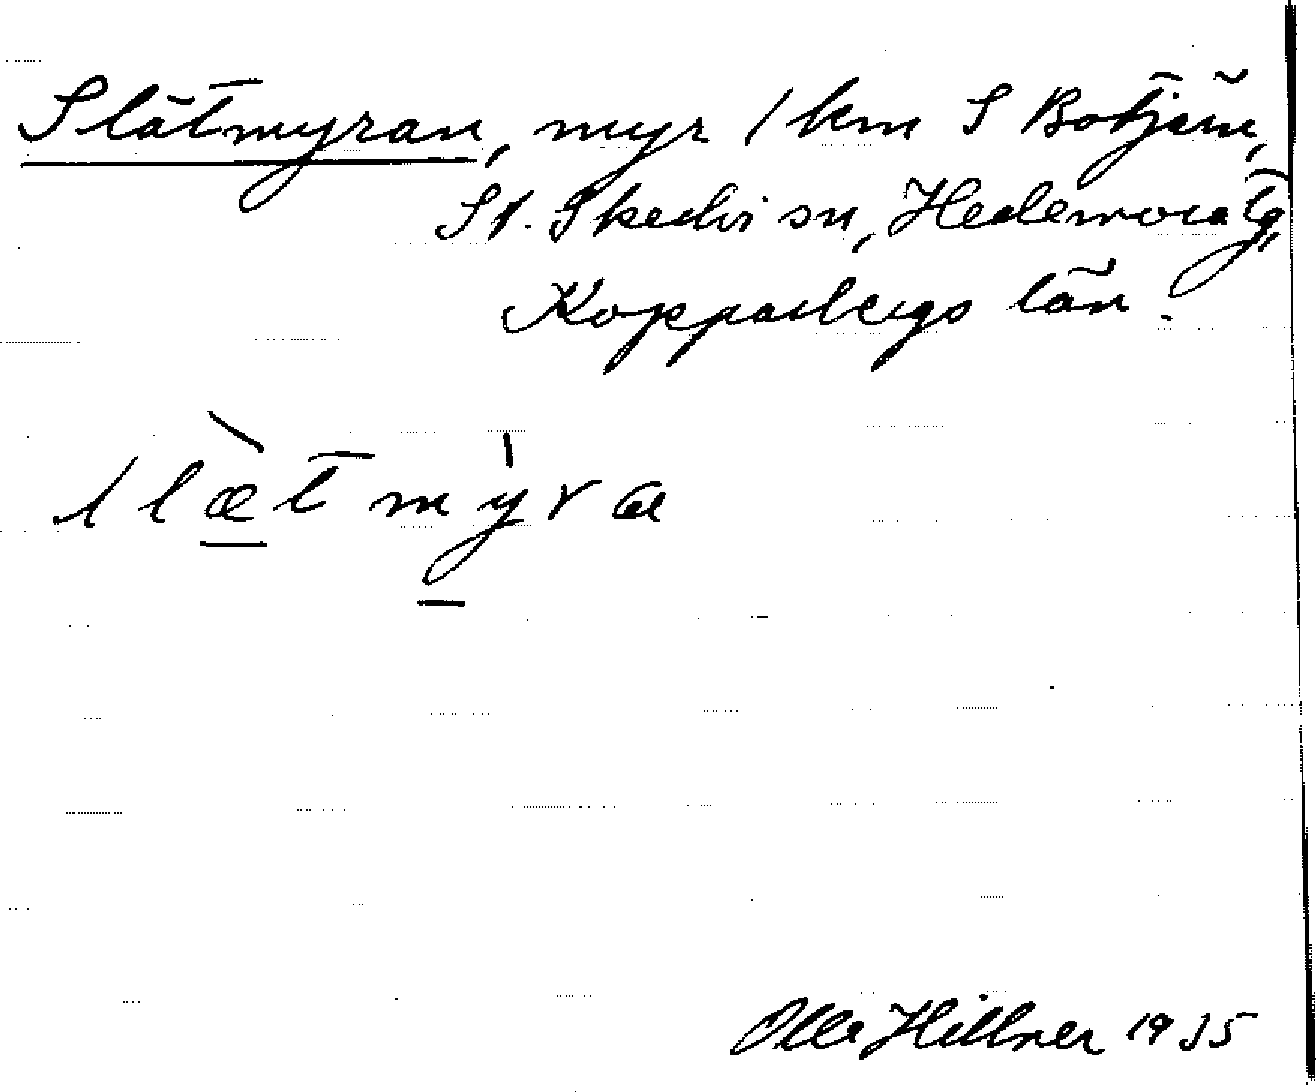 Slätmyran, myr 1 km S Botjärn,
St. Skedvi sn, Hedemora tg,
Kopparbergs län.
slæt mỳra
Olle Hillner 1935